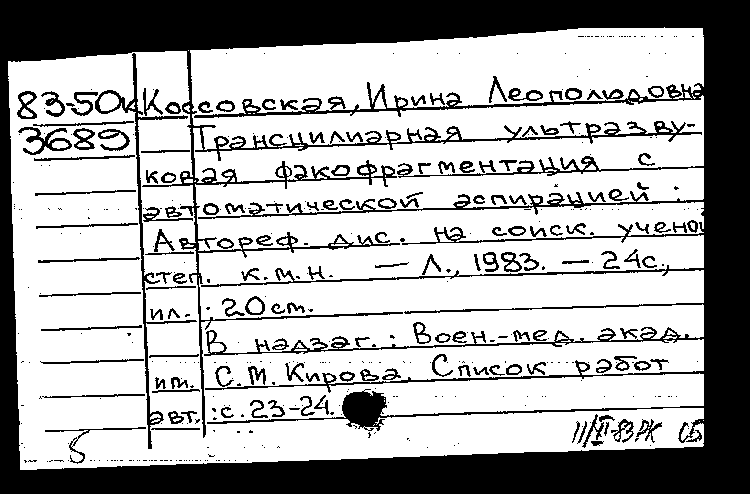 83-50к Коссовская, Ирина Леополюдовна
3689 Трансцилиарная ультразву-
ковая факофрагментация с
автоматической аспирацией :
Автореф. дис. на соиск. ученой
степ. к.м.н. — Л., 1983. — 24с.,
ил. ; 20 см.
В надзаг. : Воен.-мед. акад.
им. С.М. Кирова. Список работ
авт. : с. 23-24.
11/VI-83РК ОБ
5